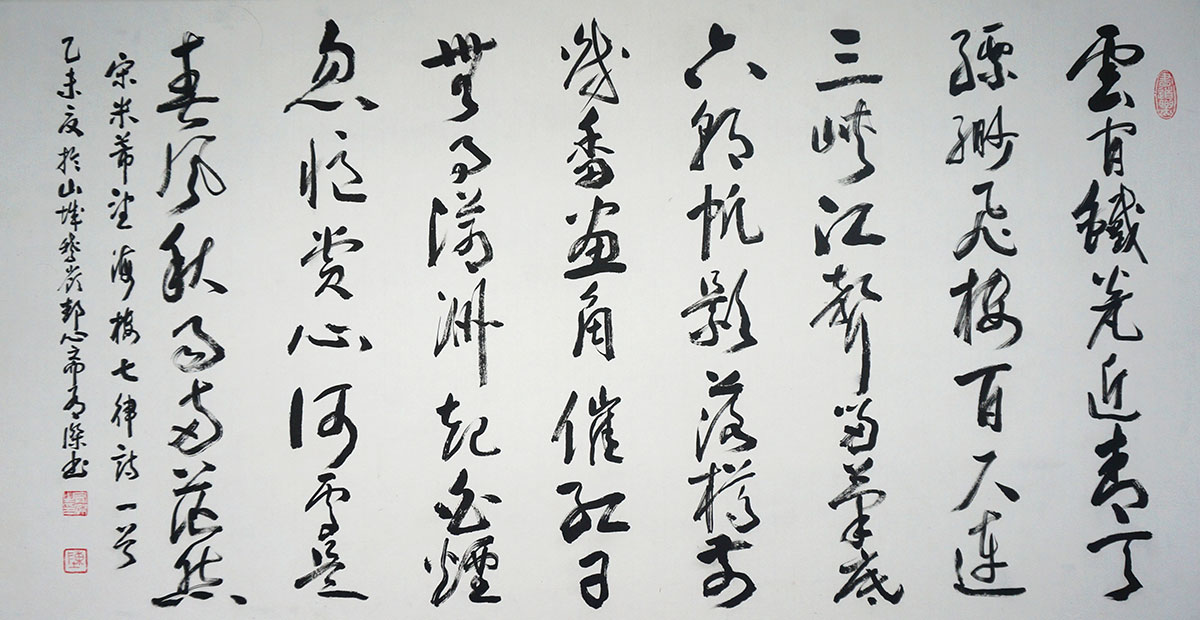 雲間鐵甕近青天
縹緲飛樓百尺連
三峽江聲留筆底
六朝帆影落樽前
幾番畫角催紅日
無事滄洲起白煙
忽憶賞心何處是
春風秋月兩茫然
宋米芾望海樓七律詩一首
乙未夏於山城 心齋 傑書